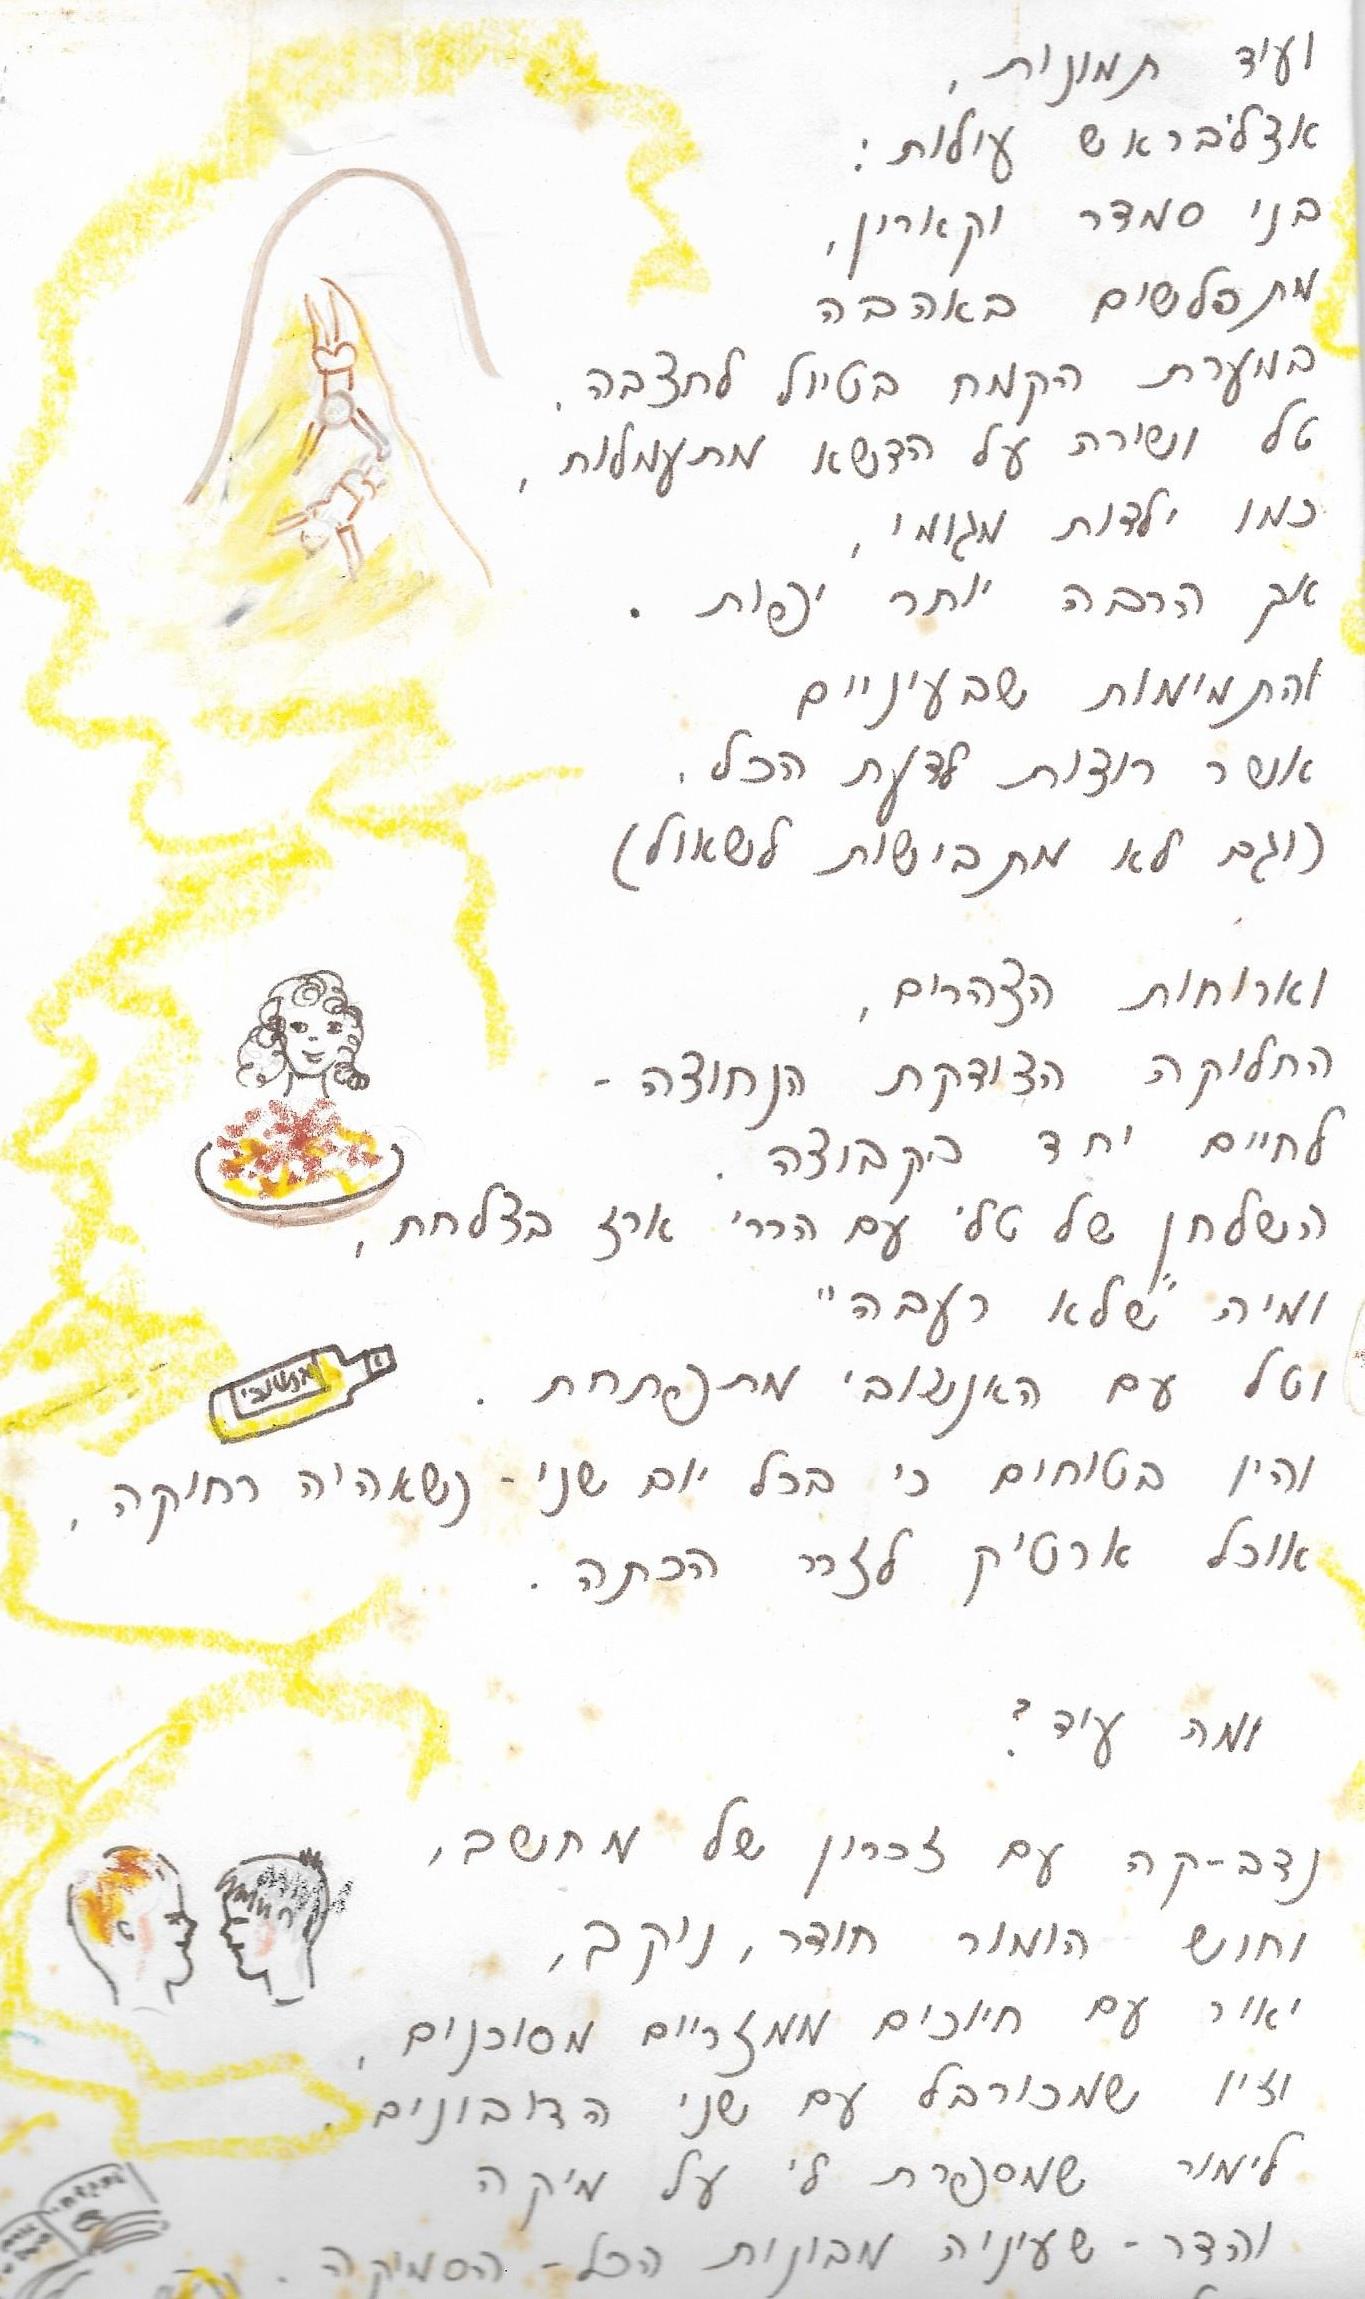 ועוד תמונות,
אצלי בראש עולות:
בני סמדר וקארון,
מתפלשים באהבה
במערת הקמח בטיול לחצבה.
טל ושירה על הדשא מתעמלות,
כמו ילדות מגומי,
אך הרבה יותר יפות.
והתמימות שבעיניים
אשר רוצות לדעת הכל,
(וגם לא מתבישות לשאול)
וארוחות הצהרים,
החלוקה הצודקת הנחוצה -
לחיים יחד בקבוצה.
השלחן של טלי עם הררי ארז בצלחת,
ומיה "שלא רעבה"
וטל עם האנשובי מתפתחת.
אנשובי
והיו בטוחים כי בכל יום שני - כשאהיה רחוקה,
אוכל ארטיק לזכר הכתה.
ומה עוד?
נדב-קה עם זכרון של מחשב,
וחוש הומור חודר, נוקב,
יאיר עם חיוכים ממזריים מסוכנים,
וזיו שמכורבל עם שני הדובונים.
לימור שמספרת לי על מיקה
והדר - שעיניה מבונות הכל - הסמיקה.